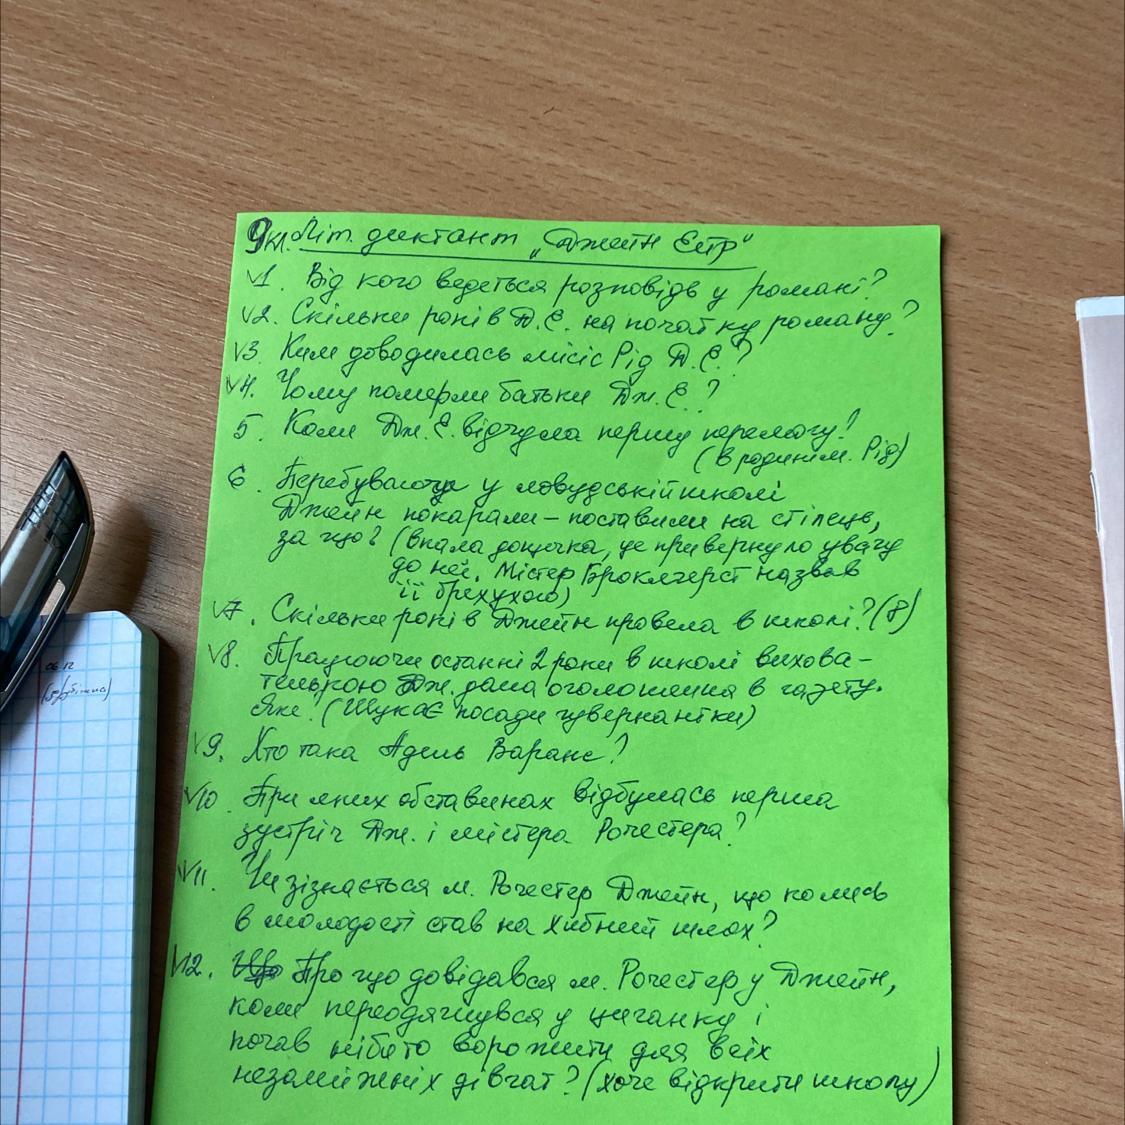 9кл. Літ. диктант „Джейн Ейр"
√1. Від кого ведеться розповідь у романі?
√2. Скільки років Д.Е. на початку роману?
√3. Ким доводилась місіс Рід Д.Е.?
√4. Чому померли батьки Дж.Е.?
5. Коли Дж.Е. відчула першу перемогу?
(в родині м. Рід)
6. Перебуваючи у ловудській школі
Джейн покарали – поставили на стілець,
за що? (впала дощечка, це привернуло увагу
до неї. Містер Броклгерст назвав
її брехухою)
√7. Скільки років Джейн провела в школі? (8)
√8. Працюючи останні 2 роки в школі вихова-
телькою Дж. дала оголошення в газету.
Яке? (Шукає посади гувернантки)
√9. Хто така Адель Варанс?
√10. При яких обставинах відбулась перша
зустріч Дж. і містера Рочестера?
√11. Чи зізнається м. Рочестер Джейн, що колись
в молодості став на хибний шлях?
√12. Про що довідався м. Рочестер у Джейн,
коли переодягнувся у циганку і
почав нібито ворожити для всіх
незаміжніх дівчат? (хоче відкрити школу)
06.12